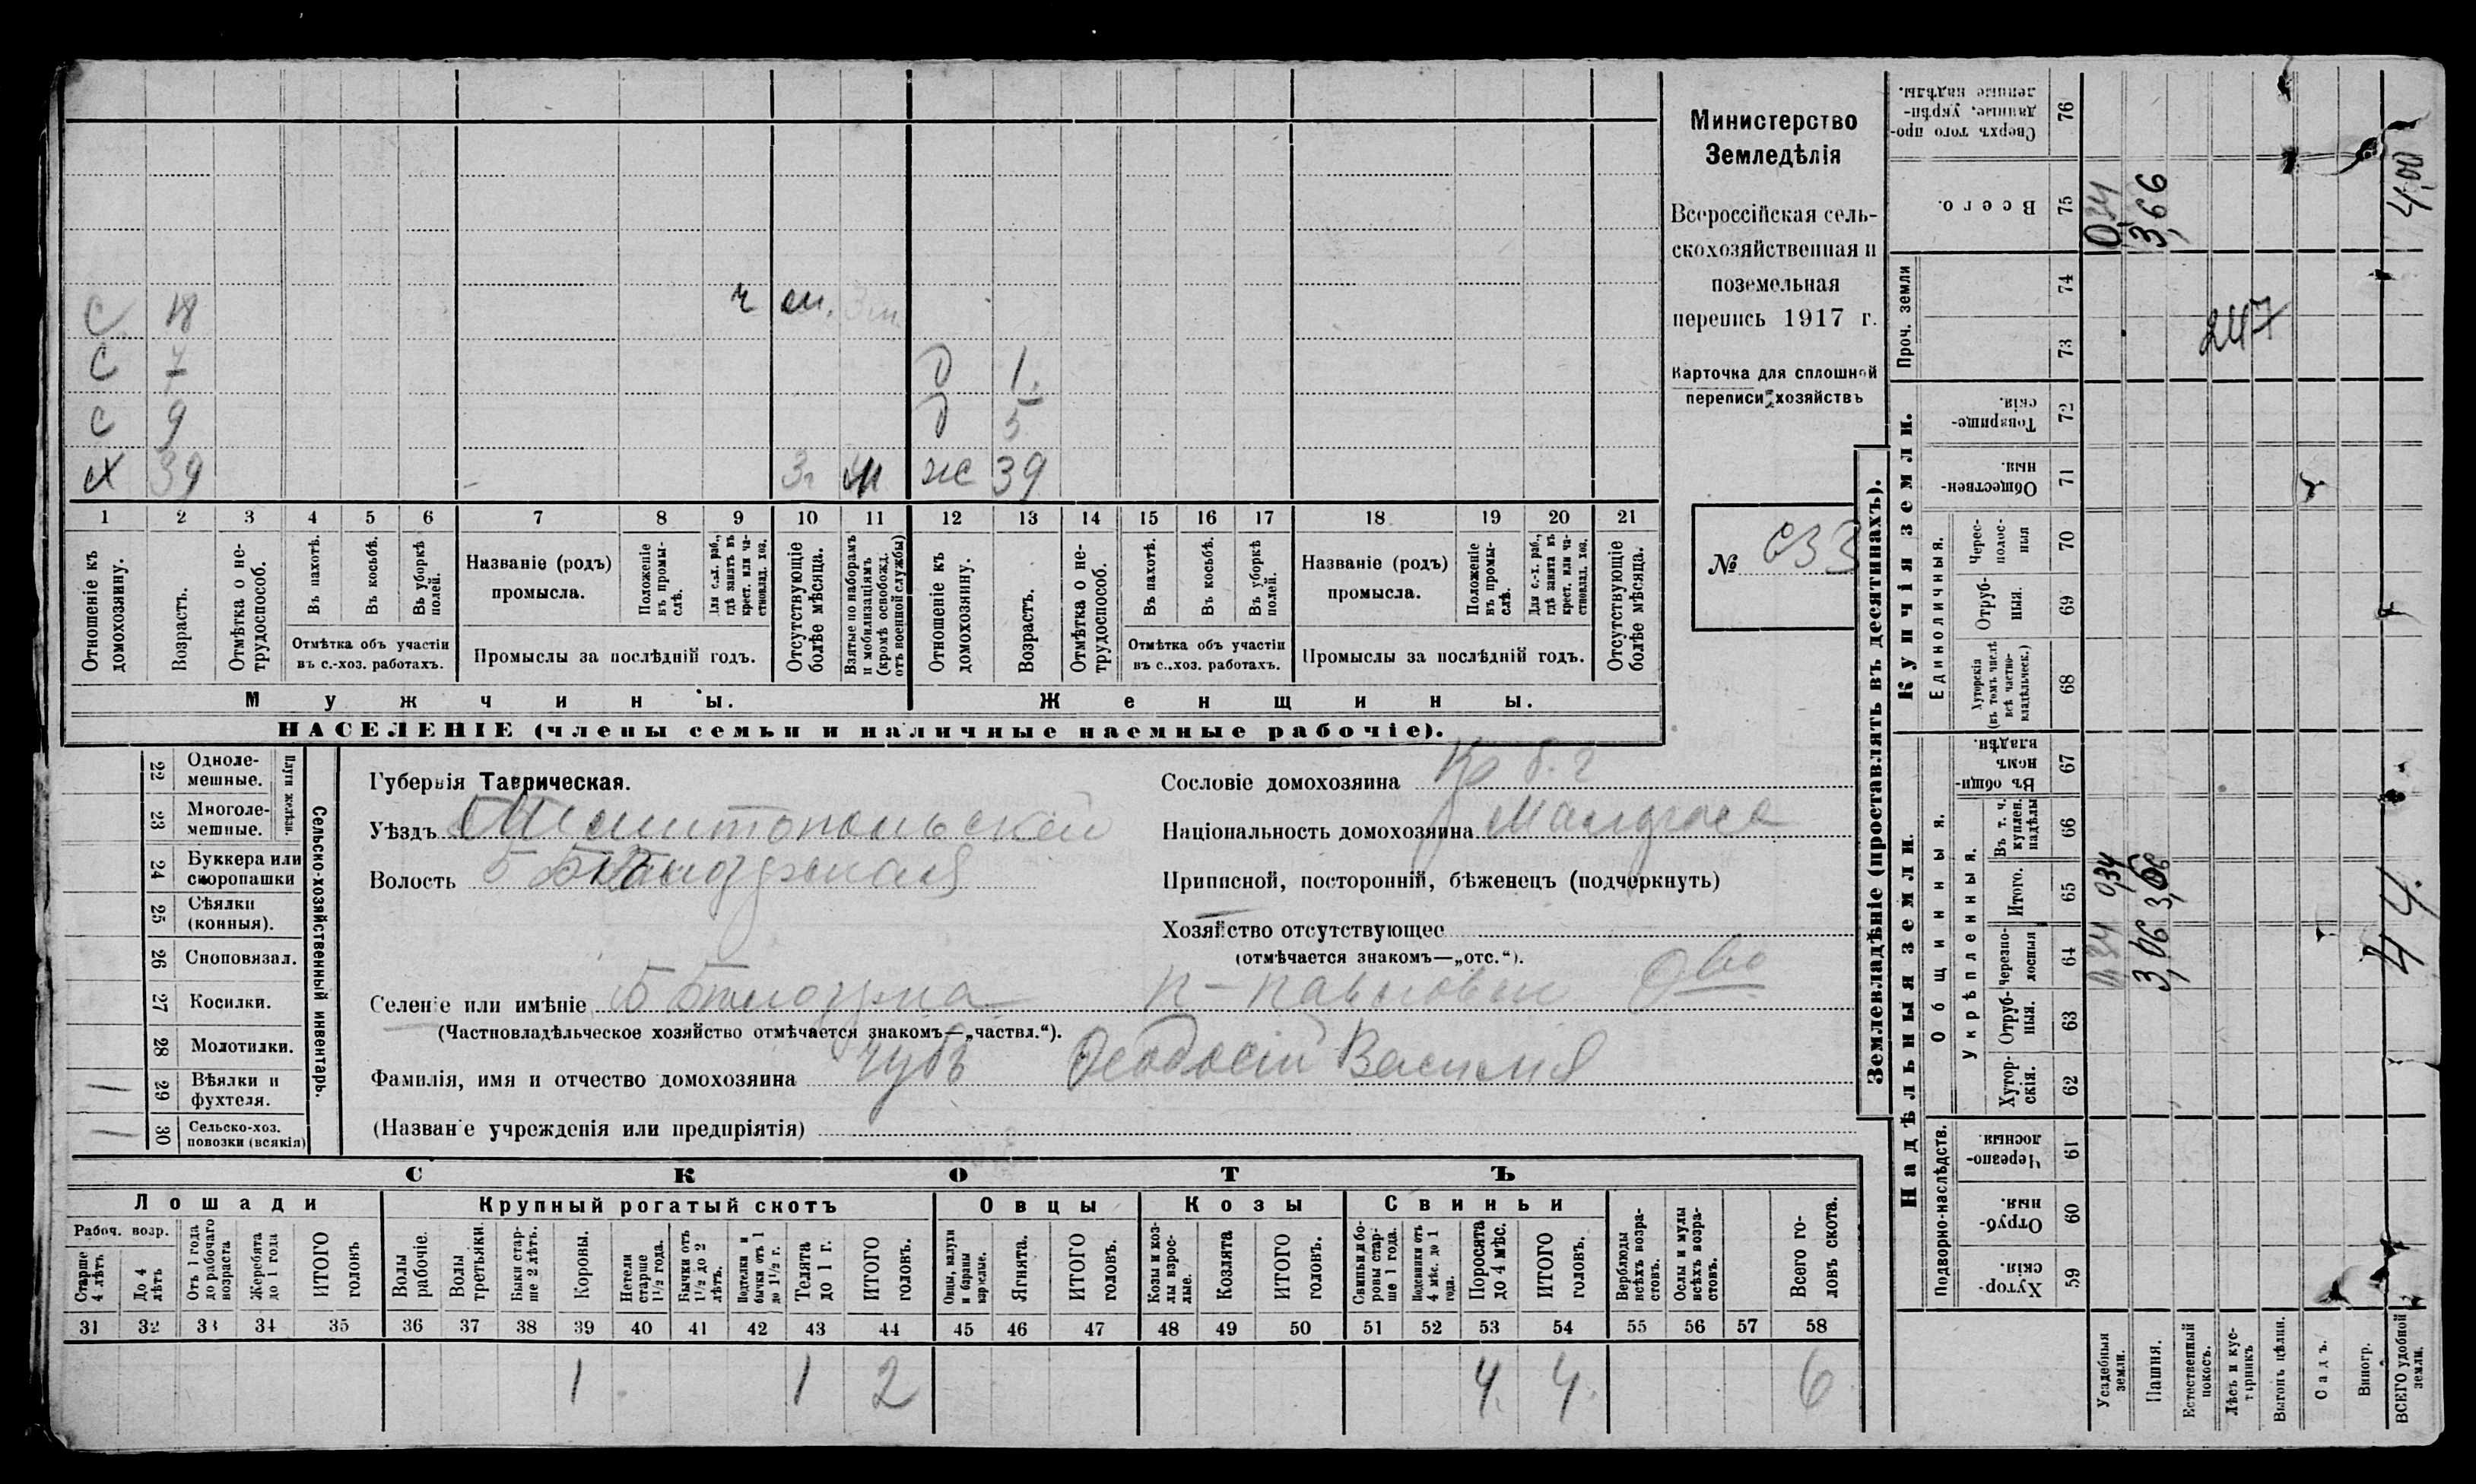 Министерство
Земледѣлія
Всероссійская сель-
скохозяйственная и
поземельная
перепись 1917 г.
Карточка для сплошной
переписи хозяйствъ
№ 633
С 18 ч
С 7 д 1
С 9 д 5
Х 39 ж 39
1 2 3 4 5 6 7 8 9 10 11 12 13 14 15 16 17 18 19 20 21
Отношеніе къ домохозяину.
Возрастъ.
Отмѣтка о не-трудоспособ.
Въ пахотѣ.
Въ косьбѣ.
Въ уборкѣ полей.
Отмѣтка объ участіи
въ с.-хоз. работахъ.
Названіе (родъ)
промысла.
Положеніе въ промы-слѣ.
Для с.-х. раб., гдѣ занятъ въ крест. или ча-стновлад. хоз.
Промыслы за послѣдній годъ.
Отсутствующіе болѣе мѣсяца.
Взятые по наборамъ и мобилизаціямъ (кромѣ освобожд. отъ военной службы)
Отношеніе къ домохозяину.
Возрастъ.
Отмѣтка о не-трудоспособ.
Въ пахотѣ.
Въ косьбѣ.
Въ уборкѣ полей.
Отмѣтка объ участіи
въ с.-хоз. работахъ.
Названіе (родъ)
промысла.
Положеніе въ промы-слѣ.
Для с.-х. раб., гдѣ занята въ крест. или ча-стновлад. хоз.
Промыслы за послѣдній годъ.
Отсутствующіе болѣе мѣсяца.
Мужчины. Женщины.
НАСЕЛЕНІЕ (члены семьи и наличные наемные рабочіе).
22 Одноле-мешные.
23 Многоле-мешные.
Плуги желѣзн.
24 Буккера или скоропашки
25 Сѣялки (конныя).
26 Сноповязал.
27 Косилки.
28 Молотилки.
1 29 Вѣялки и фухтеля.
1 30 Сельско-хоз. повозки (всякія)
Сельско-хозяйственный инвентарь.
Губернія Таврическая.
Уѣздъ Мелитопольскій
Волость
Селеніе или имѣніе
(Частновладѣльческое хозяйство отмѣчается знакомъ—„частвл.“).
Фамилія, имя и отчество домохозяина Чубъ Феодосій Василія
(Названіе учрежденія или предпріятія)
Сословіе домохозяина
Національность домохозяина Малоросс
Приписной, посторонній, бѣженецъ (подчеркнуть)
Хозяйство отсутствующее
(отмѣчается знакомъ—„отс.“).
СКОТЪ
Лошади Крупный рогатый скотъ Овцы Козы Свиньи
Рабоч. возр.
Старше 4 лѣтъ
До 4 лѣтъ
Отъ 1 года до рабочаго возраста
Жеребята до 1 года
ИТОГО головъ
Волы рабочіе.
Волы третьяки.
Быки стар-ше 2 лѣтъ.
Коровы.
Нетели старше 1½ года.
Бычки отъ 1½ до 2 лѣтъ.
Подтелки и бычки отъ 1 до 1½ г.
Телята до 1 г.
ИТОГО головъ.
Овцы, валухи и бараны взрослые.
Ягнята.
ИТОГО головъ.
Козы и коз-лы взрос-лые.
Козлята
ИТОГО головъ.
Свиньи и бо-ровы стар-ше 1 года.
Подсвинки отъ 4 мѣс. до 1 года.
Поросята до 4 мѣс.
ИТОГО головъ.
Верблюды всѣхъ возра-стовъ.
Ослы и мулы всѣхъ возра-стовъ.
Всего го-ловъ скота.
31 32 33 34 35 36 37 38 39 40 41 42 43 44 45 46 47 48 49 50 51 52 53 54 55 56 57 58
1 1 2 4 4 6
Землевладѣніе (проставлять въ десятинахъ).
Надѣльныя земли. Купчія земли. Проч. земли
Подворно-наслѣдств.
Общинныя.
Укрѣпленныя.
Единоличныя.
Хутор-скія. 59
Отруб-ныя. 60
Черезпо-лосныя. 61
Хутор-скія. 62
Отруб-ныя. 63
Черезпо-лосныя 64
Итого. 65
Въ т. ч. куплен. надѣлы 66
Въ общин-номъ владѣн. 67
Хуторскія (въ томъ числѣ всѣ частно-владѣльческ.) 68
Отруб-ныя. 69
Черес-полос-ныя 70
Обществен-ныя. 71
Товарище-скія. 72
73
74
Всего. 75
Сверхъ того про-данные, укрѣп-ленные надѣлы. 76
Усадебныя земли. 0,34 0,34 0,34
Пашня. 3,66
Естественный покосъ.
Лѣсъ и кус-тарникъ 247
Выгонъ цѣлин.
Садъ.
Виногр.
ВСЕГО удобной земли. 4 4. 4,00